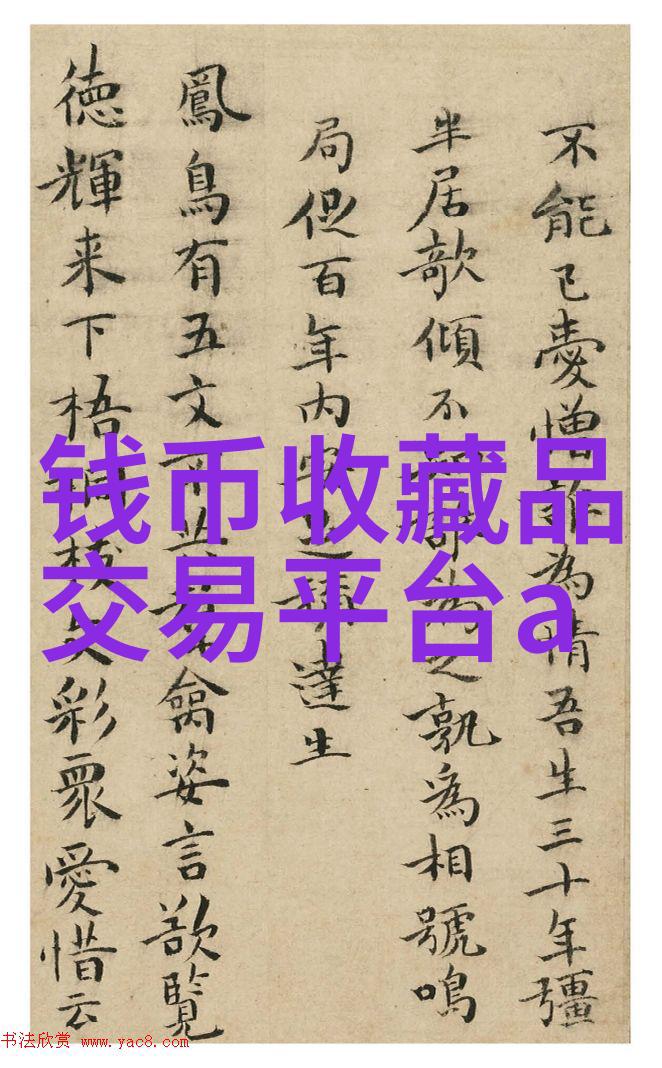 不能已憂憎為情吾生三十年彊
半居欹傾不為之孰爲相號鳴
局促百年内達生
鳳鳥有五文禽姿言欲覽
徳輝来下梧桐枝文彩眾愛惜云
钱币收藏品
交易平台a
书法欣赏 www.yac8.com